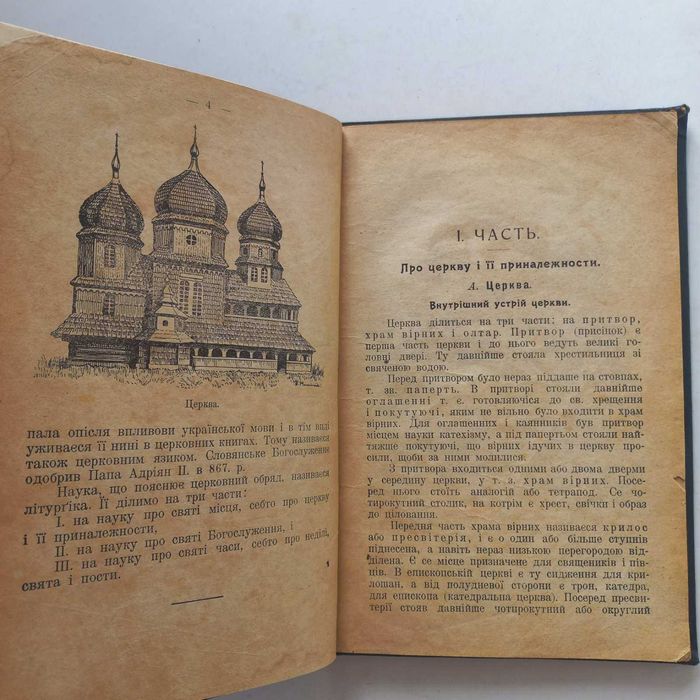 — 4 —
Церква.
пала опісля впливови української мови і в тім виді
уживаєся її нині в церковних книгах. Тому називаєся
також церковним язиком. Словянське Богослуження
одобрив Папа Адріян II. в 867. р.
Наука, що пояснює церковний обряд, називаєся
літурґіка. Її ділимо на три части:
I. на науку про святі місця, себто про церкву
і її приналежности,
II. на науку про святі Богослуження, і
III. на науку про святі часи, себто про неділі,
свята і пости.
I. ЧАСТЬ.
Про церкву і її приналежности.
А. Церква.
Внутрішний устрій церкви.
Церква ділиться на три части: на притвор,
храм вірних і олтар. Притвор (присінок) є
перша часть церкви і до нього ведуть великі го-
ловні двері. Ту давнійше стояла хрестильниця зі
свяченою водою.
Перед притвором було нераз піддаше на стовпах,
т. зв. паперть. В притворі стояли давнійше
оглашенні т. є. готовляючіся до св. хрещення
і покутуючі, яким не вільно було входити в храм
вірних. Для оглашенних і каянників був притвор
місцем науки катехізму, а під папертьом стояли най-
тяжше покутуючі, що вірних ідучих в церкву про-
сили, щоби за ними молилися.
З притвора входиться одними або двома дверми
у середину церкви, у т. з. храм вірних. Посе-
ред нього стоїть аналогій або тетрапод. Се чо-
тирокутний столик, на котрім є хрест, свічки і образ
до цілования.
Передня часть храма вірних називаєся крилос
або пресвітерія, і є о один або більше ступнів
піднесена, а навіть нераз низькою перегородою від-
ділена. Є се місце призначене для священиків і пів-
ців. В епископській церкві є ту сидження для кри-
лошан, а від полудневої сторони є трон, катедра,
для епископа (катедральна церква). Посеред пресви-
терії стояв давнійше чотирокутний або округлий